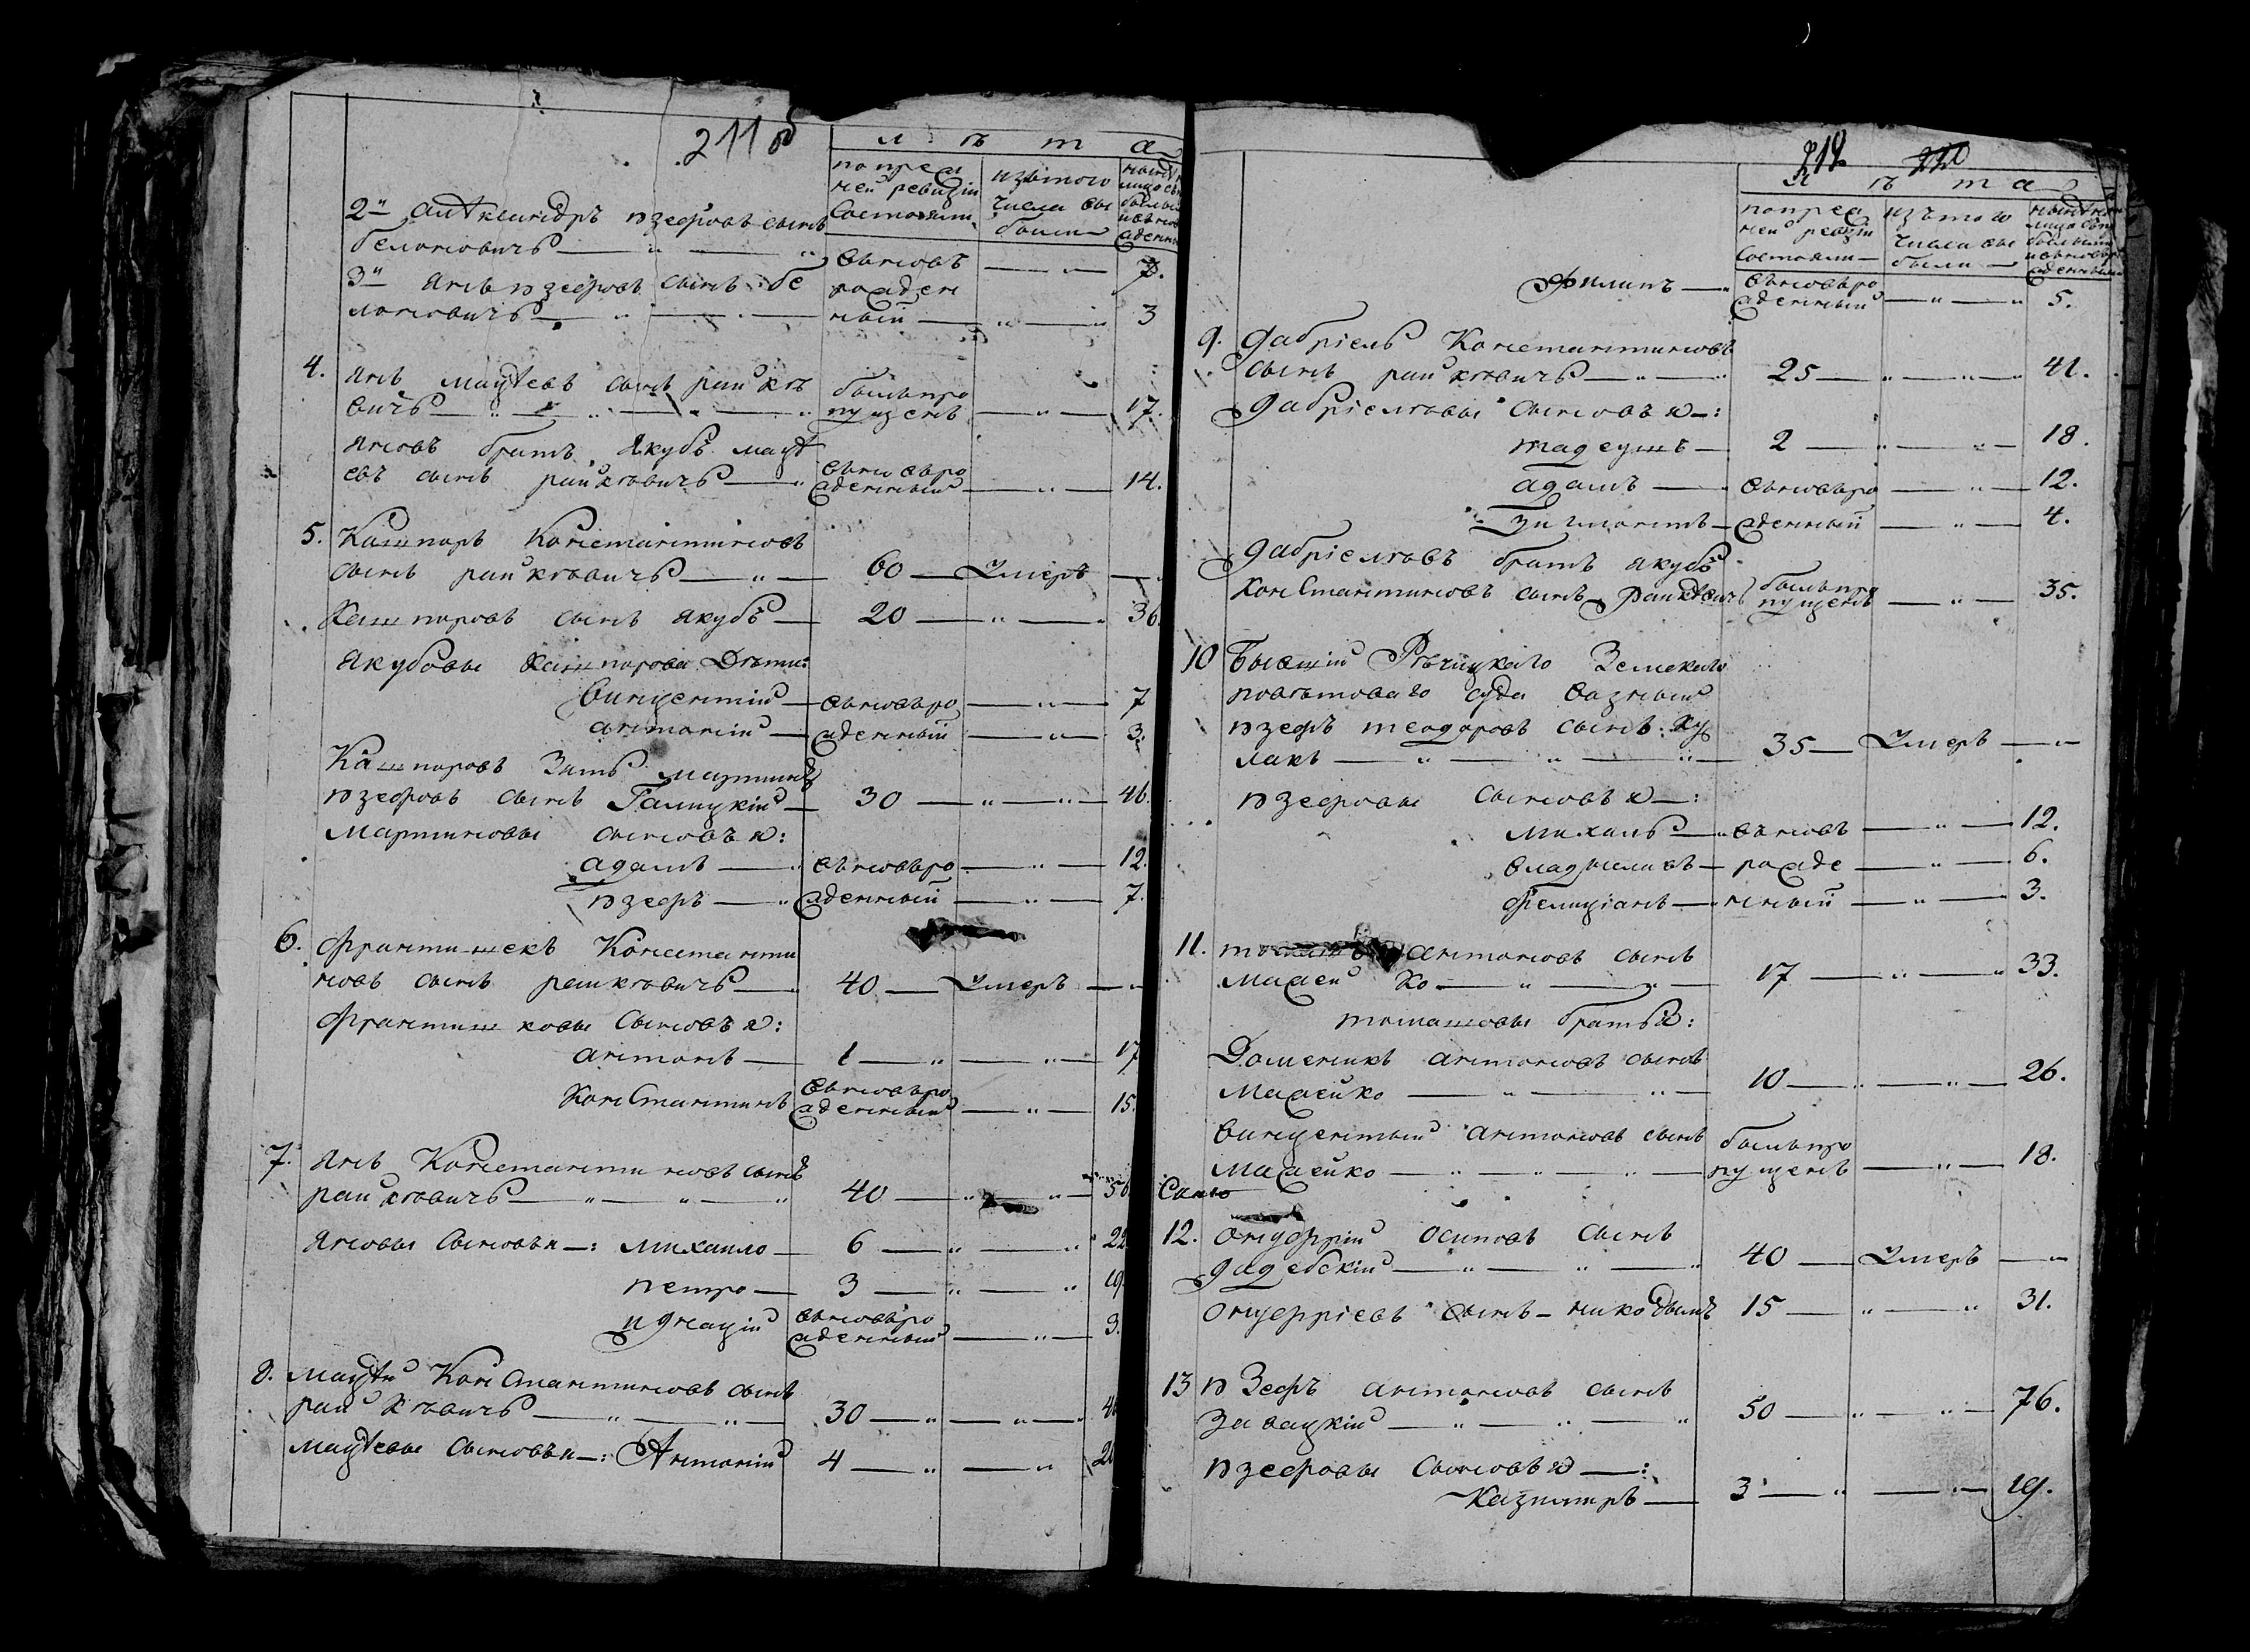 211 об
лѣта
по пред
ней ревизiи
Состояли
изътого
числа вы
были
2й Александръ юзефовъ сынъ
белоновичъ — вновь — 7.
3й янъ юзефовъ сынъ бе
лоновичъ — рожден
ный — 3
4. янъ мацѣевъ сынъ райкѣ
вичъ — былъ про
пущенъ — 17.
яновъ братъ якубъ мацѣ
евъ сынъ райкѣвичъ — вновьро
жденный — 14.
5. Кашпоръ Константиновъ
сынъ райкѣвичъ — 60 — Умеръ —
Кашпоровъ сынъ якубъ — 20 — 36
якубовы Кашпорова Дѣти:
винцентiй — вновьро — 7
антонiй — жденный — 3.
Кашпоровъ Зять мартинъ
юзефовъ сынъ Галицкiй — 30 — 46.
мартиновы сыновья:
адамъ — вновьро — 12.
юзефъ — жденный — 7.
6. францишекъ Константи
новъ сынъ райкѣвичъ — 40 — Умеръ —
францишковы сыновья:
антонъ — 1 — 17
Константинъ вновьро
жденный — 15.
7. янъ Константиновъ сынъ
райкѣвичъ — 40 — 56
яновы сыновья: михайло — 6 — 22
петро — 3 — 19
игнацiй вновьро
жденный — 3.
8. мацѣй Константиновъ сынъ
райкѣвичъ — 30 — 46
мацѣевы сыновья: Антонiй 4 — 20
212
лѣта
по пред
ней ревизiи
Состояли
изъ того
числа вы
были
филипъ — вновьро
жденный — 5.
9. габрiель Константиновъ
сынъ райкѣвичъ — 25 — 41.
габрiелѣвы сыновья:
тадеушъ — 2 — 18.
адамъ — вновьро — 12.
зигмонтъ — жденный — 4.
габрiелѣвъ братъ якубъ
Константиновъ сынъ райкѣвичъ былъ про
пущенъ — 35.
10 Бывшiй Рѣчицкаго Земскаго
повѣтоваго суда возный
юзефъ теодоровъ сынъ Ку
лакъ — 35 — Умеръ —
юзефовы сыновья:
михаль — вновь — 12.
владыславъ — рожде — 6.
фелицiанъ — нный — 3.
11. томашъ антоновъ сынъ
Мажейко — 17 — 33.
томашовы братья:
Доменикъ антоновъ сынъ
Мажейко — 10 — 26.
винцентый антоновъ сынъ былъ про
Мажейко — пущенъ — 18.
12. онуфрiй осиповъ сынъ
гадебскiй — 40 — Умеръ —
онуфрiевъ сынъ никодымъ 15 — 31.
13 юзефъ антоновъ сынъ
завацкiй — 50 — 76.
юзефовы сыновья:
Казимиръ — 3 — 19.